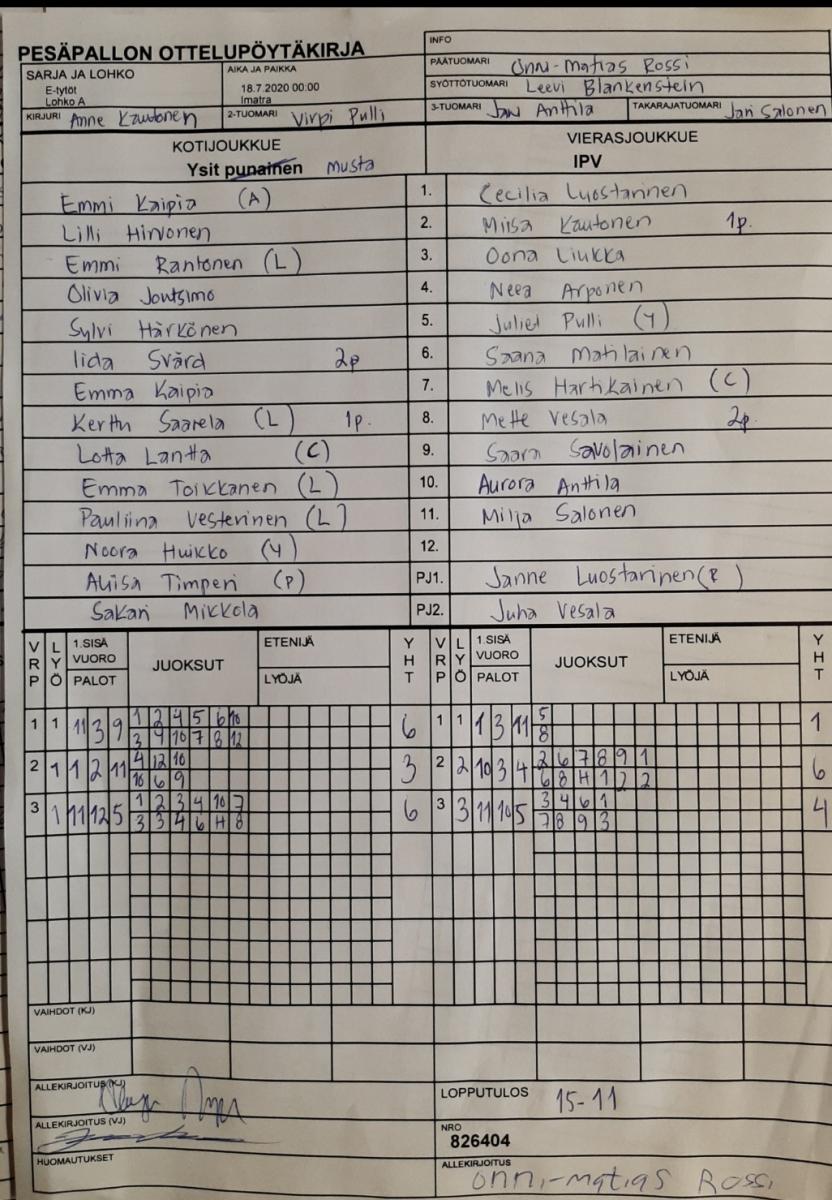 PESÄPALLON OTTELUPÖYTÄKIRJA
INFO
SARJA JA LOHKO
E-tytöt
Lohko A
AIKA JA PAIKKA
18.7.2020 00:00
Imatra
PÄÄTUOMARI Onni-Matias Rossi
SYÖTTÖTUOMARI Leevi Blankenstein
KIRJURI Anne Kautonen 2-TUOMARI Virpi Pulli 3-TUOMARI Jan Anttila TAKARAJATUOMARI Jari Salonen
KOTIJOUKKUE VIERASJOUKKUE
Ysit punainen musta IPV
Emmi Kaipia (A) 1. Cecilia Luostarinen
Lilli Hirvonen 2. Miisa Kautonen 1p.
Emmi Rantonen (L) 3. Oona Liukka
Olivia Joutsimo 4. Neea Arponen
Sylvi Härkönen 5. Juliet Pulli (Y)
Iida Svärd 2p 6. Saana Matilainen
Emma Kaipia 7. Melis Hartikainen (C)
Kerttu Saarela (L) 1p. 8. Mette Vesala 2p.
Lotta Lantta (C) 9. Saara Savolainen
Emma Toikkanen (L) 10. Aurora Anttila
Pauliina Vesterinen (L) 11. Milja Salonen
Noora Huikko (Y) 12.
Aliisa Timperi (P) PJ1. Janne Luostarinen (P)
Sakari Mikkola PJ2. Juha Vesala
VRP LYÖ 1.SISÄ VUORO PALOT JUOKSUT ETENIJÄ LYÖJÄ YHT VRP LYÖ 1.SISÄ VUORO PALOT JUOKSUT ETENIJÄ LYÖJÄ YHT
1 1 11 3 9 1 2 4 5 6 10 6 1 1 1 3 11 5 1
3 9 10 7 8 12 8
2 1 1 2 11 4 12 10 3 2 2 10 3 4 2 6 7 8 9 1 6
10 6 9 6 8 H 1 2 2
3 1 11 12 5 1 2 3 4 10 7 6 3 3 11 10 5 3 4 6 1 4
3 3 4 6 H 8 7 8 9 3
VAIHDOT (KJ)
VAIHDOT (VJ)
ALLEKIRJOITUS (KJ)
LOPPUTULOS 15-11
ALLEKIRJOITUS (VJ)
NRO
826404
HUOMAUTUKSET
ALLEKIRJOITUS
Onni-Matias Rossi